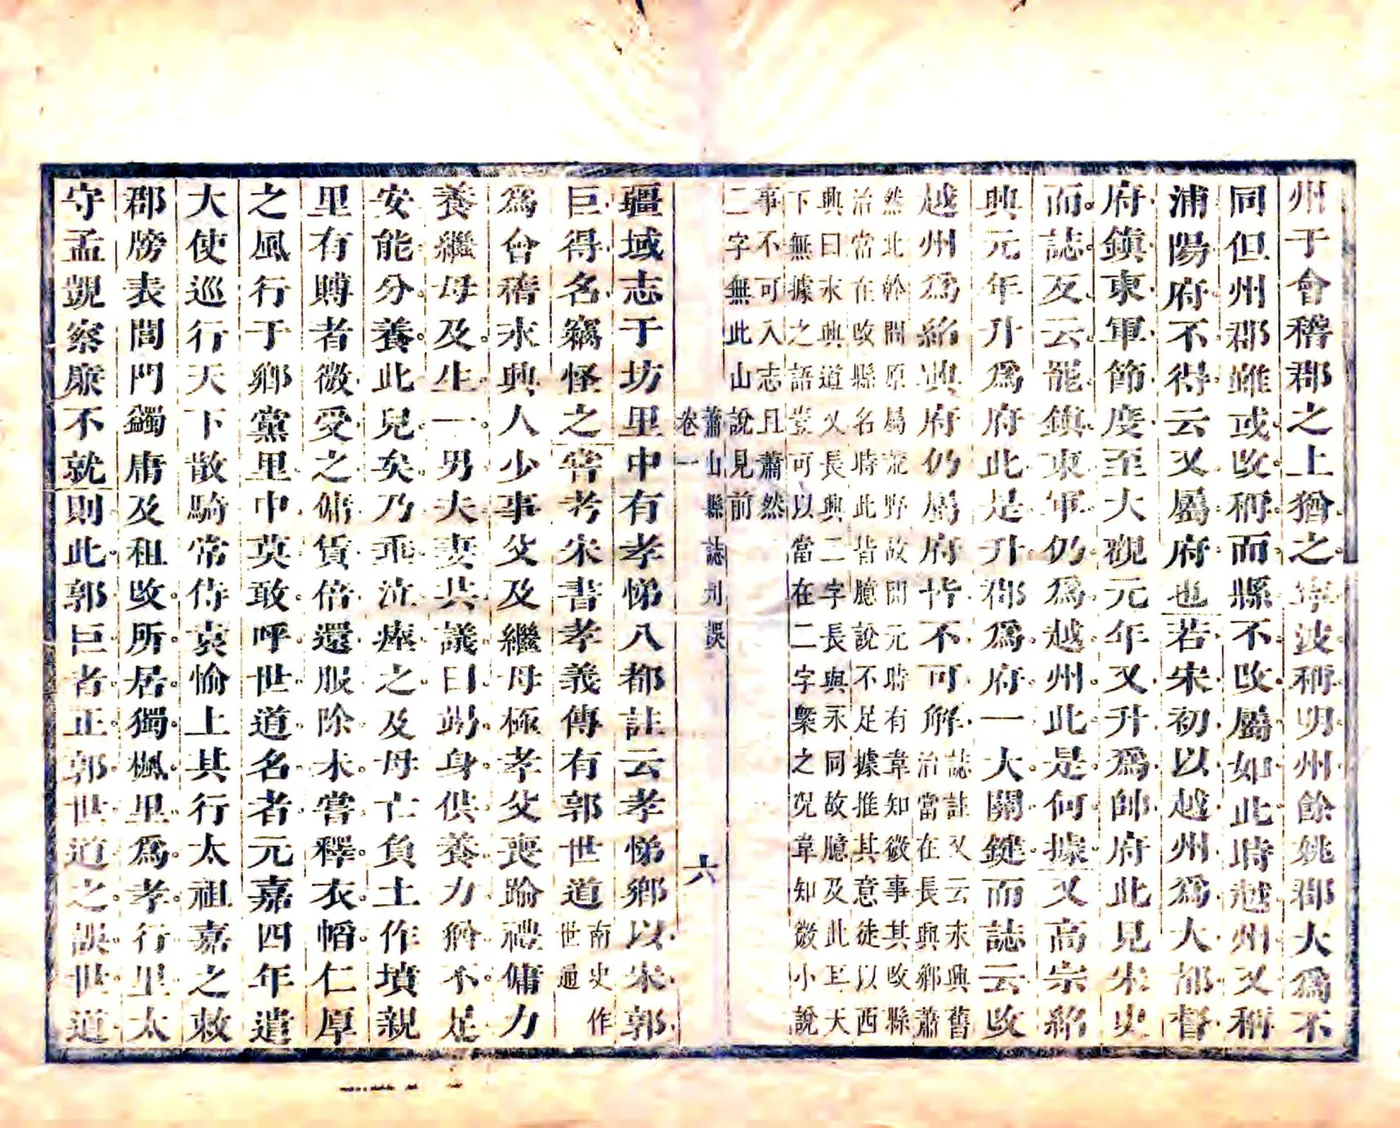 州于會稽郡之上猶之寧波稱明州餘姚郡大爲不
同但州郡雖或改稱而縣不改屬如此時越州又稱
浦陽府不得云又屬府也若宋初以越州爲大都督
府鎮東軍節度至大觀元年又升爲帥府此見宋史
而誌反云罷鎮東軍仍爲越州此是何據又高宗紹
興元年升爲府此是升郡爲府一大關鍵而誌云改
越州爲紹興府仍屬府皆不可解
誌註又云永興舊
治當在長興鄉蕭
然北幹間原屬荒野故開元時有韋知微事其改縣
治當在改縣名時此皆臆說不足據推其意徒以西
興曰永興道又長興二字長與永同故臆及此耳大
下無據之語豈可以當在二字槩之況韋知微小說
事不可入志且蕭然
二字無此山說見前
蕭山縣誌刋誤
卷一
六
疆域志于坊里中有孝悌八都註云孝悌鄉以宋郭
巨得名竊怪之嘗考宋書孝義傳有郭世道
南史作
世通
爲會稽永興人少事父及繼母極孝父喪踰禮傭力
養繼母及生一男夫妻共議曰竭身供養力猶不足
安能分養此兒矣乃垂泣瘞之及母亡負土作墳親
里有賻者微受之傭賃倍還服除未嘗釋衣幍仁厚
之風行于鄉黨里中莫敢呼世道名者元嘉四年遣
大使巡行天下散騎常侍袁愉上其行太祖嘉之敕
郡牓表閭門蠲庸及祖改所居獨楓里爲孝行里太
守孟覬察廉不就則此郭巨者正郭世道之誤世道